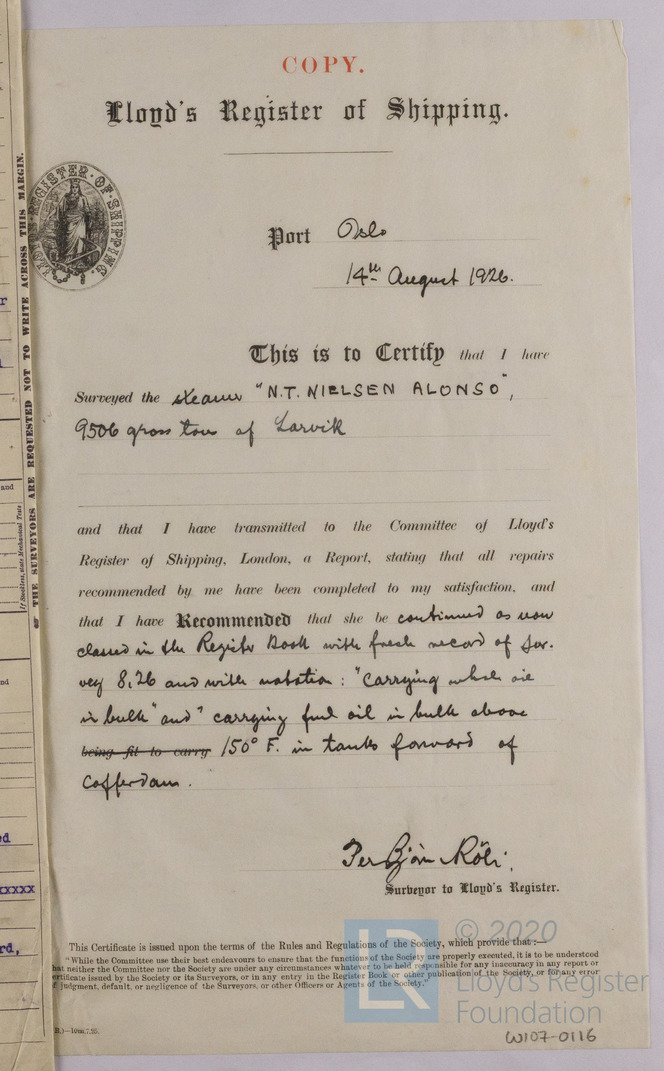 COPY.
Lloyd's Register of Shipping.
LLOYD'S REGISTER OF SHIPPING.
THE SURVEYORS ARE REQUESTED NOT TO WRITE ACROSS THIS MARGIN.
Port Oslo
14th August 1926.
This is to Certify that I have
Surveyed the steamer "N.T. NIELSEN ALONSO",
9506 gross tons of Larvik
and that I have transmitted to the Committee of Lloyd's
Register of Shipping, London, a Report, stating that all repairs
recommended by me have been completed to my satisfaction, and
that I have Recommended that she be continued as now
classed in the Register Book with fresh record of Sur-
vey 8,26 and with notation: "carrying whale oil
in bulk" and "carrying fuel oil in bulk above
being fit to carry 150° F. in tanks forward of
cofferdam.
Surveyor to Lloyd's Register.
This Certificate is issued upon the terms of the Rules and Regulations of the Society, which provide that :—
"While the Committee use their best endeavours to ensure that the functions of the Society are properly executed, it is to be understood
that neither the Committee nor the Society are under any circumstances whatever to be held responsible for any inaccuracy in any report or
certificate issued by the Society or its Surveyors, or in any entry in the Register Book or other publication of the Society, or for any error
of judgment, default, or negligence of the Surveyors, or other Officers or Agents of the Society."
© 2020
LR
Lloyd's Register
Foundation
W107-0116
and
nd
ed
xxxxx
rd,